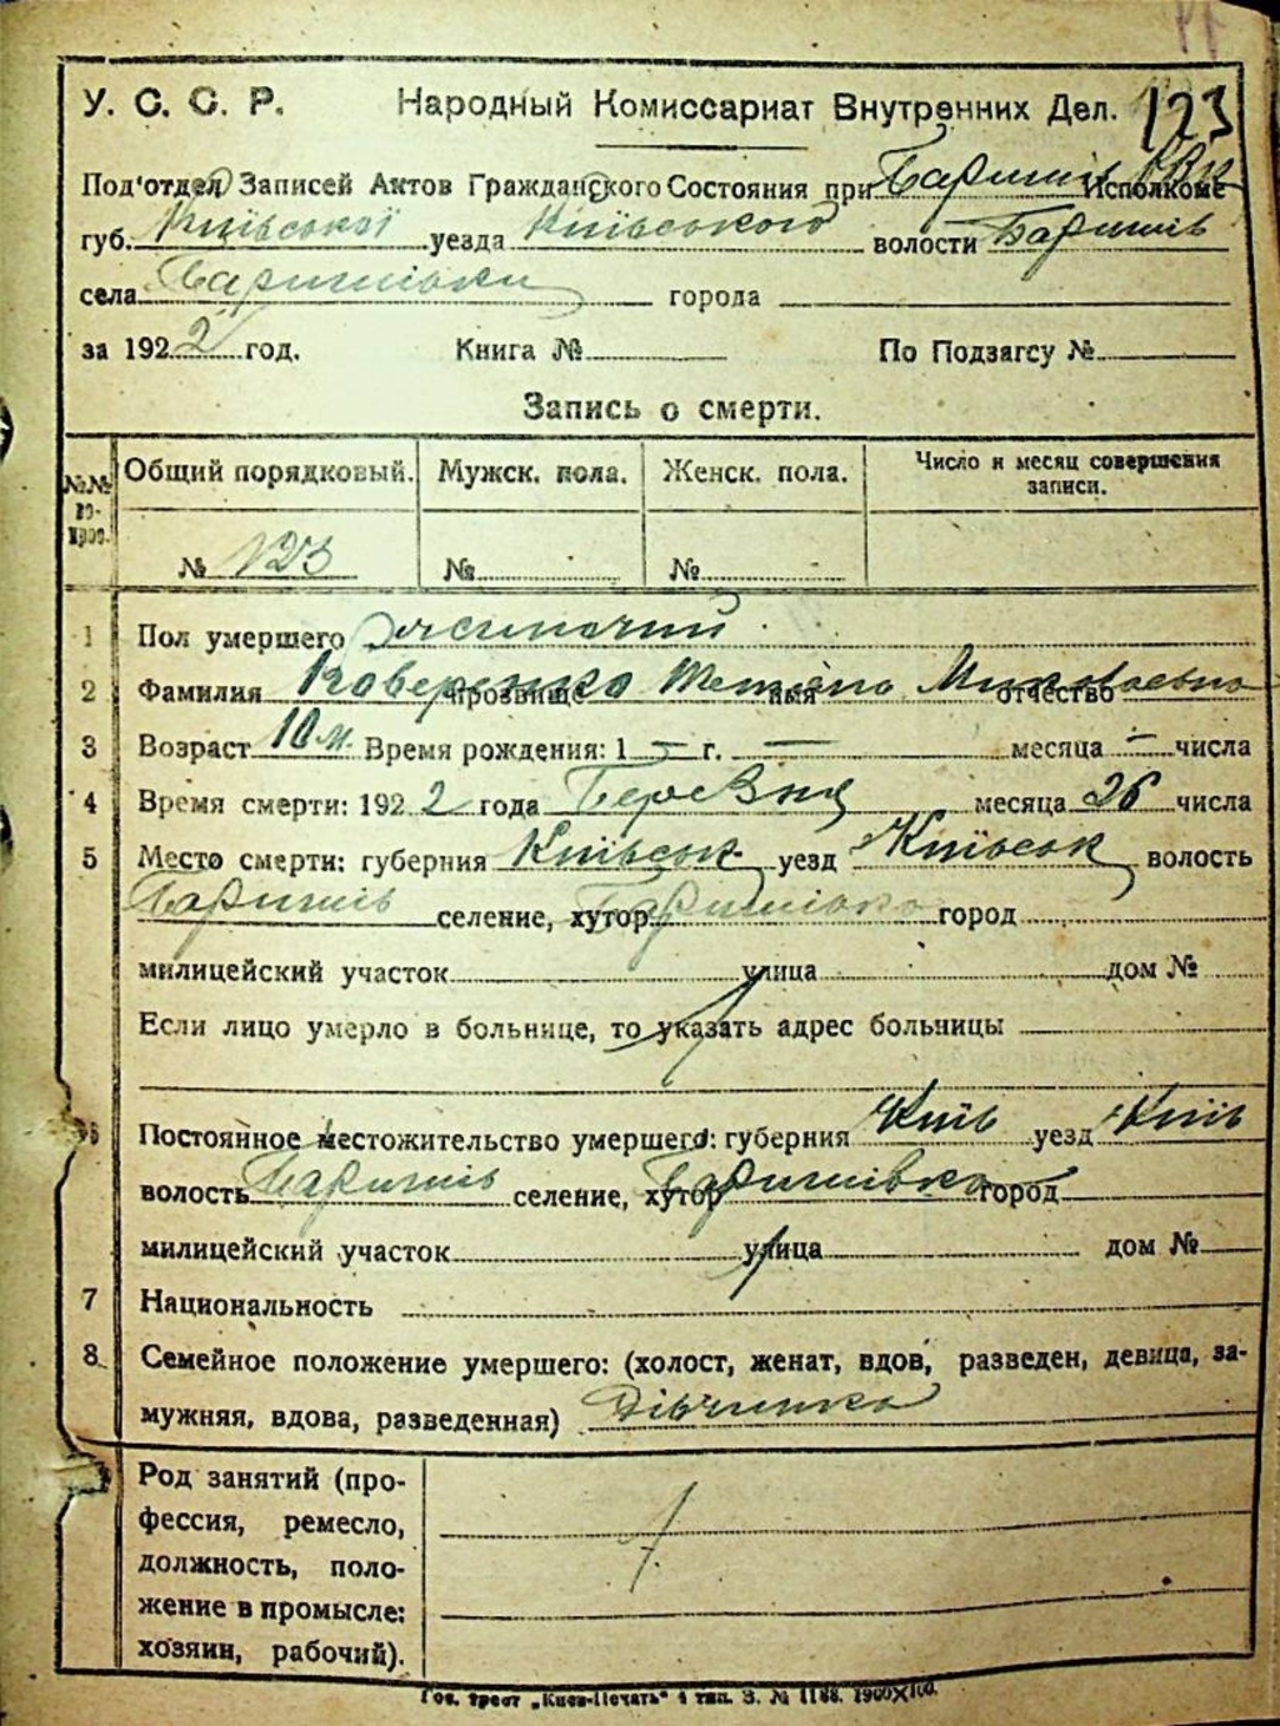 У. С. С. Р. Народный Комиссариат Внутренних Дел. 123
Под'отдел Записей Актов Гражданского Состояния при Баришів РВК Исполкоме
губ. Київської уезда Київського волости Баришів
села Баришівки города
за 1922 год. Книга № По Подзагсу №
Запись о смерти.
№№ во-прос. Общий порядковый. Мужск. пола. Женск. пола. Число и месяц совершения записи.
№ 123 № №
1 Пол умершего Жіночий
2 Фамилия Коверенко прозвище Тетяна имя Миколаевна отчество
3 Возраст 10 м. Время рождения: 1 — г. — месяца — числа
4 Время смерти: 1922 года Березня месяца 26 числа
5 Место смерти: губерния Київськ уезд Київськ волость
Баришів селение, хутор Баришівка город
милицейский участок улица дом №
Если лицо умерло в больнице, то указать адрес больницы
6 Постоянное местожительство умершего: губерния Київ уезд Київ
волость Баришів селение, хутор Баришівка город
милицейский участок улица дом №
7 Национальность
8 Семейное положение умершего: (холост, женат, вдов, разведен, девица, за-
мужняя, вдова, разведенная) Дівчинка
Род занятий (про-
фессия, ремесло,
должность, поло-
жение в промысле:
хозяин, рабочий).
Гос. трест „Киев-Печать" 4 тип. З. № 1188. 1900×100.